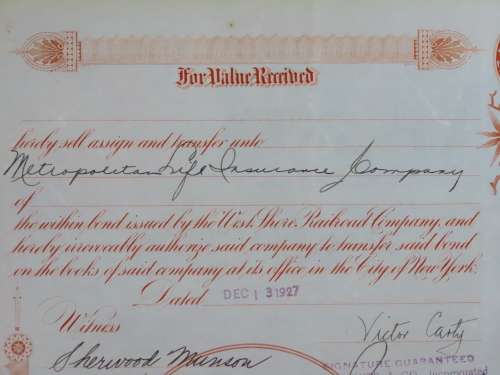 For Value Received
hereby sell assign and transfer unto
Metropolitan Life Insurance Company
of
the within bond issued by the West Shore Railroad Company, and
hereby irrevocably authorize said company to transfer said bond
on the books of said company at its office in the City of New York.
Dated DEC 13 1927
Witness
Victor Carty
Sherwood Munson
SIGNATURE GUARANTEED
CO. Incorporated